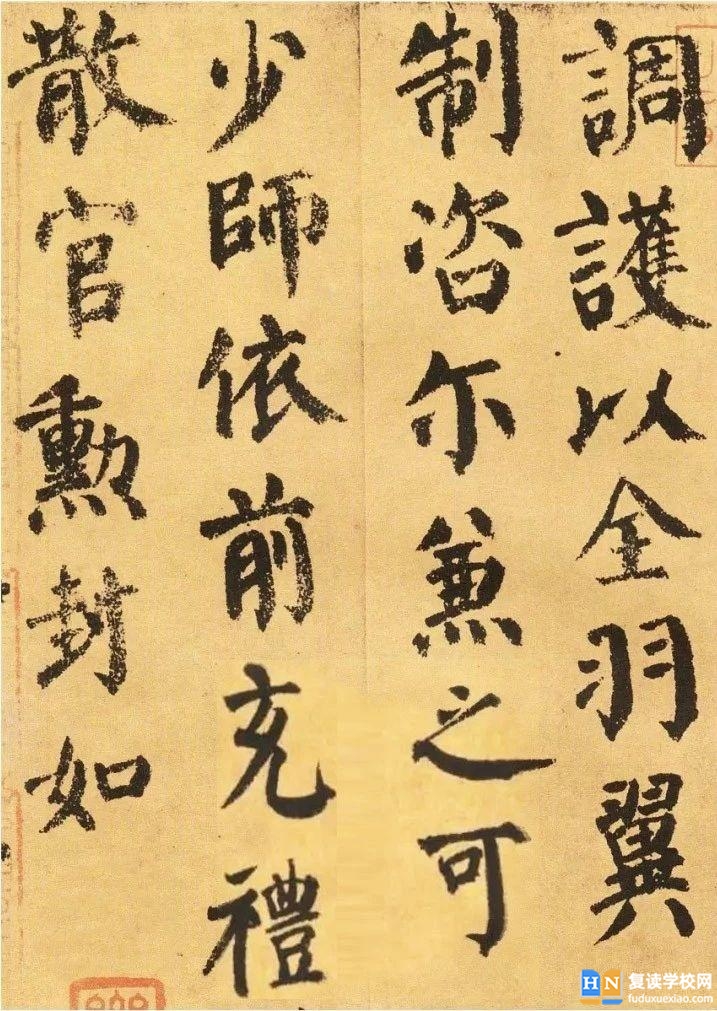 調護以全羽翼
制咨尓兼之可
少師依前充禮
散官勳封如
HN 复读学校网
fuduxuexiao.com